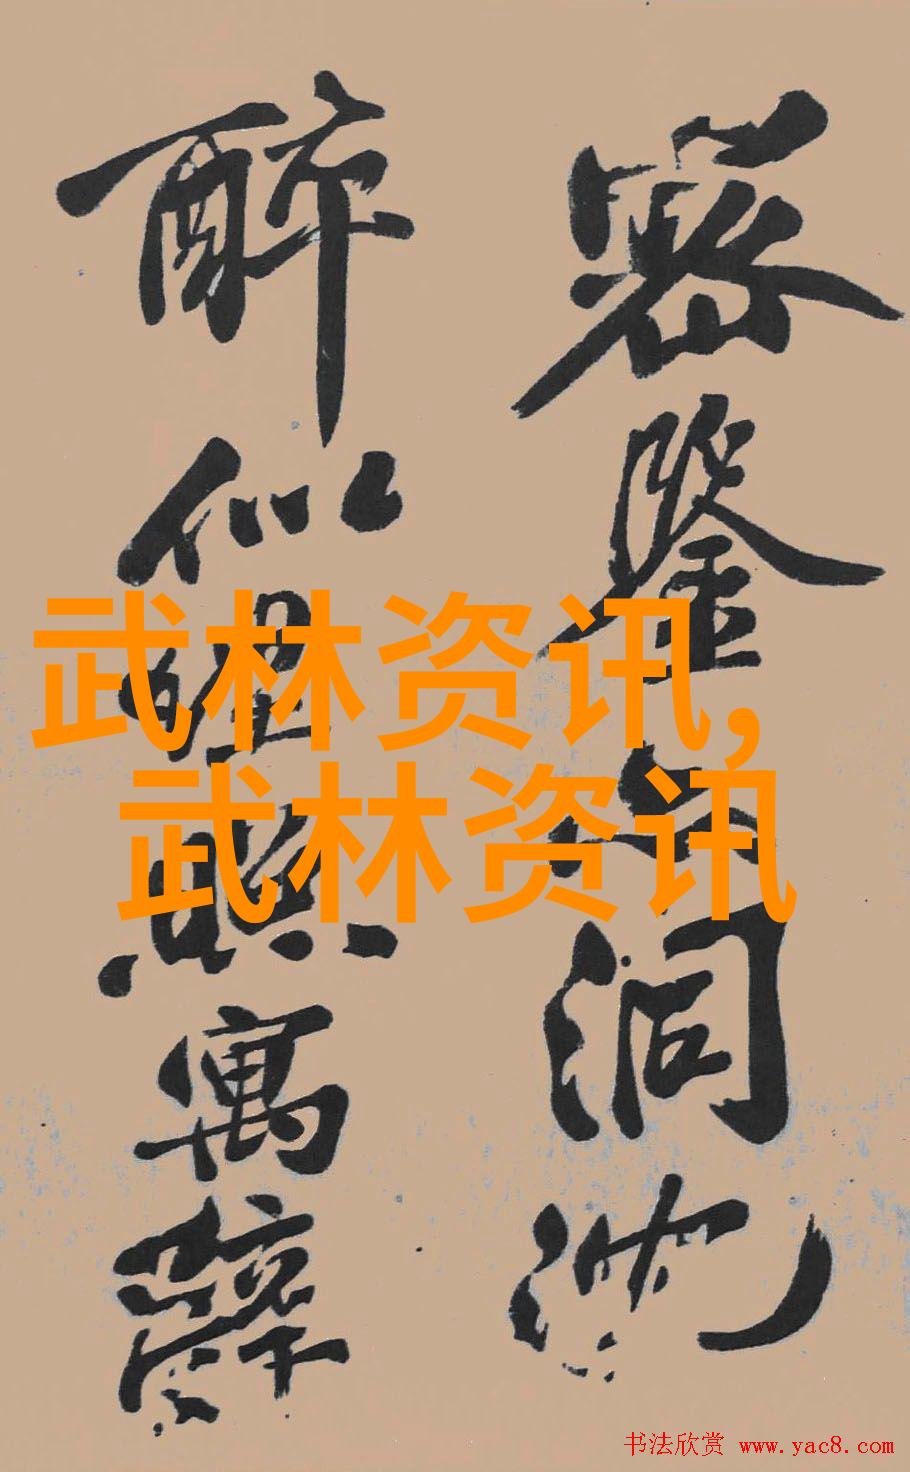 密鉴洞
醉似照寓辞
武林资讯,
武林资讯
书法欣赏 www.yac8.com